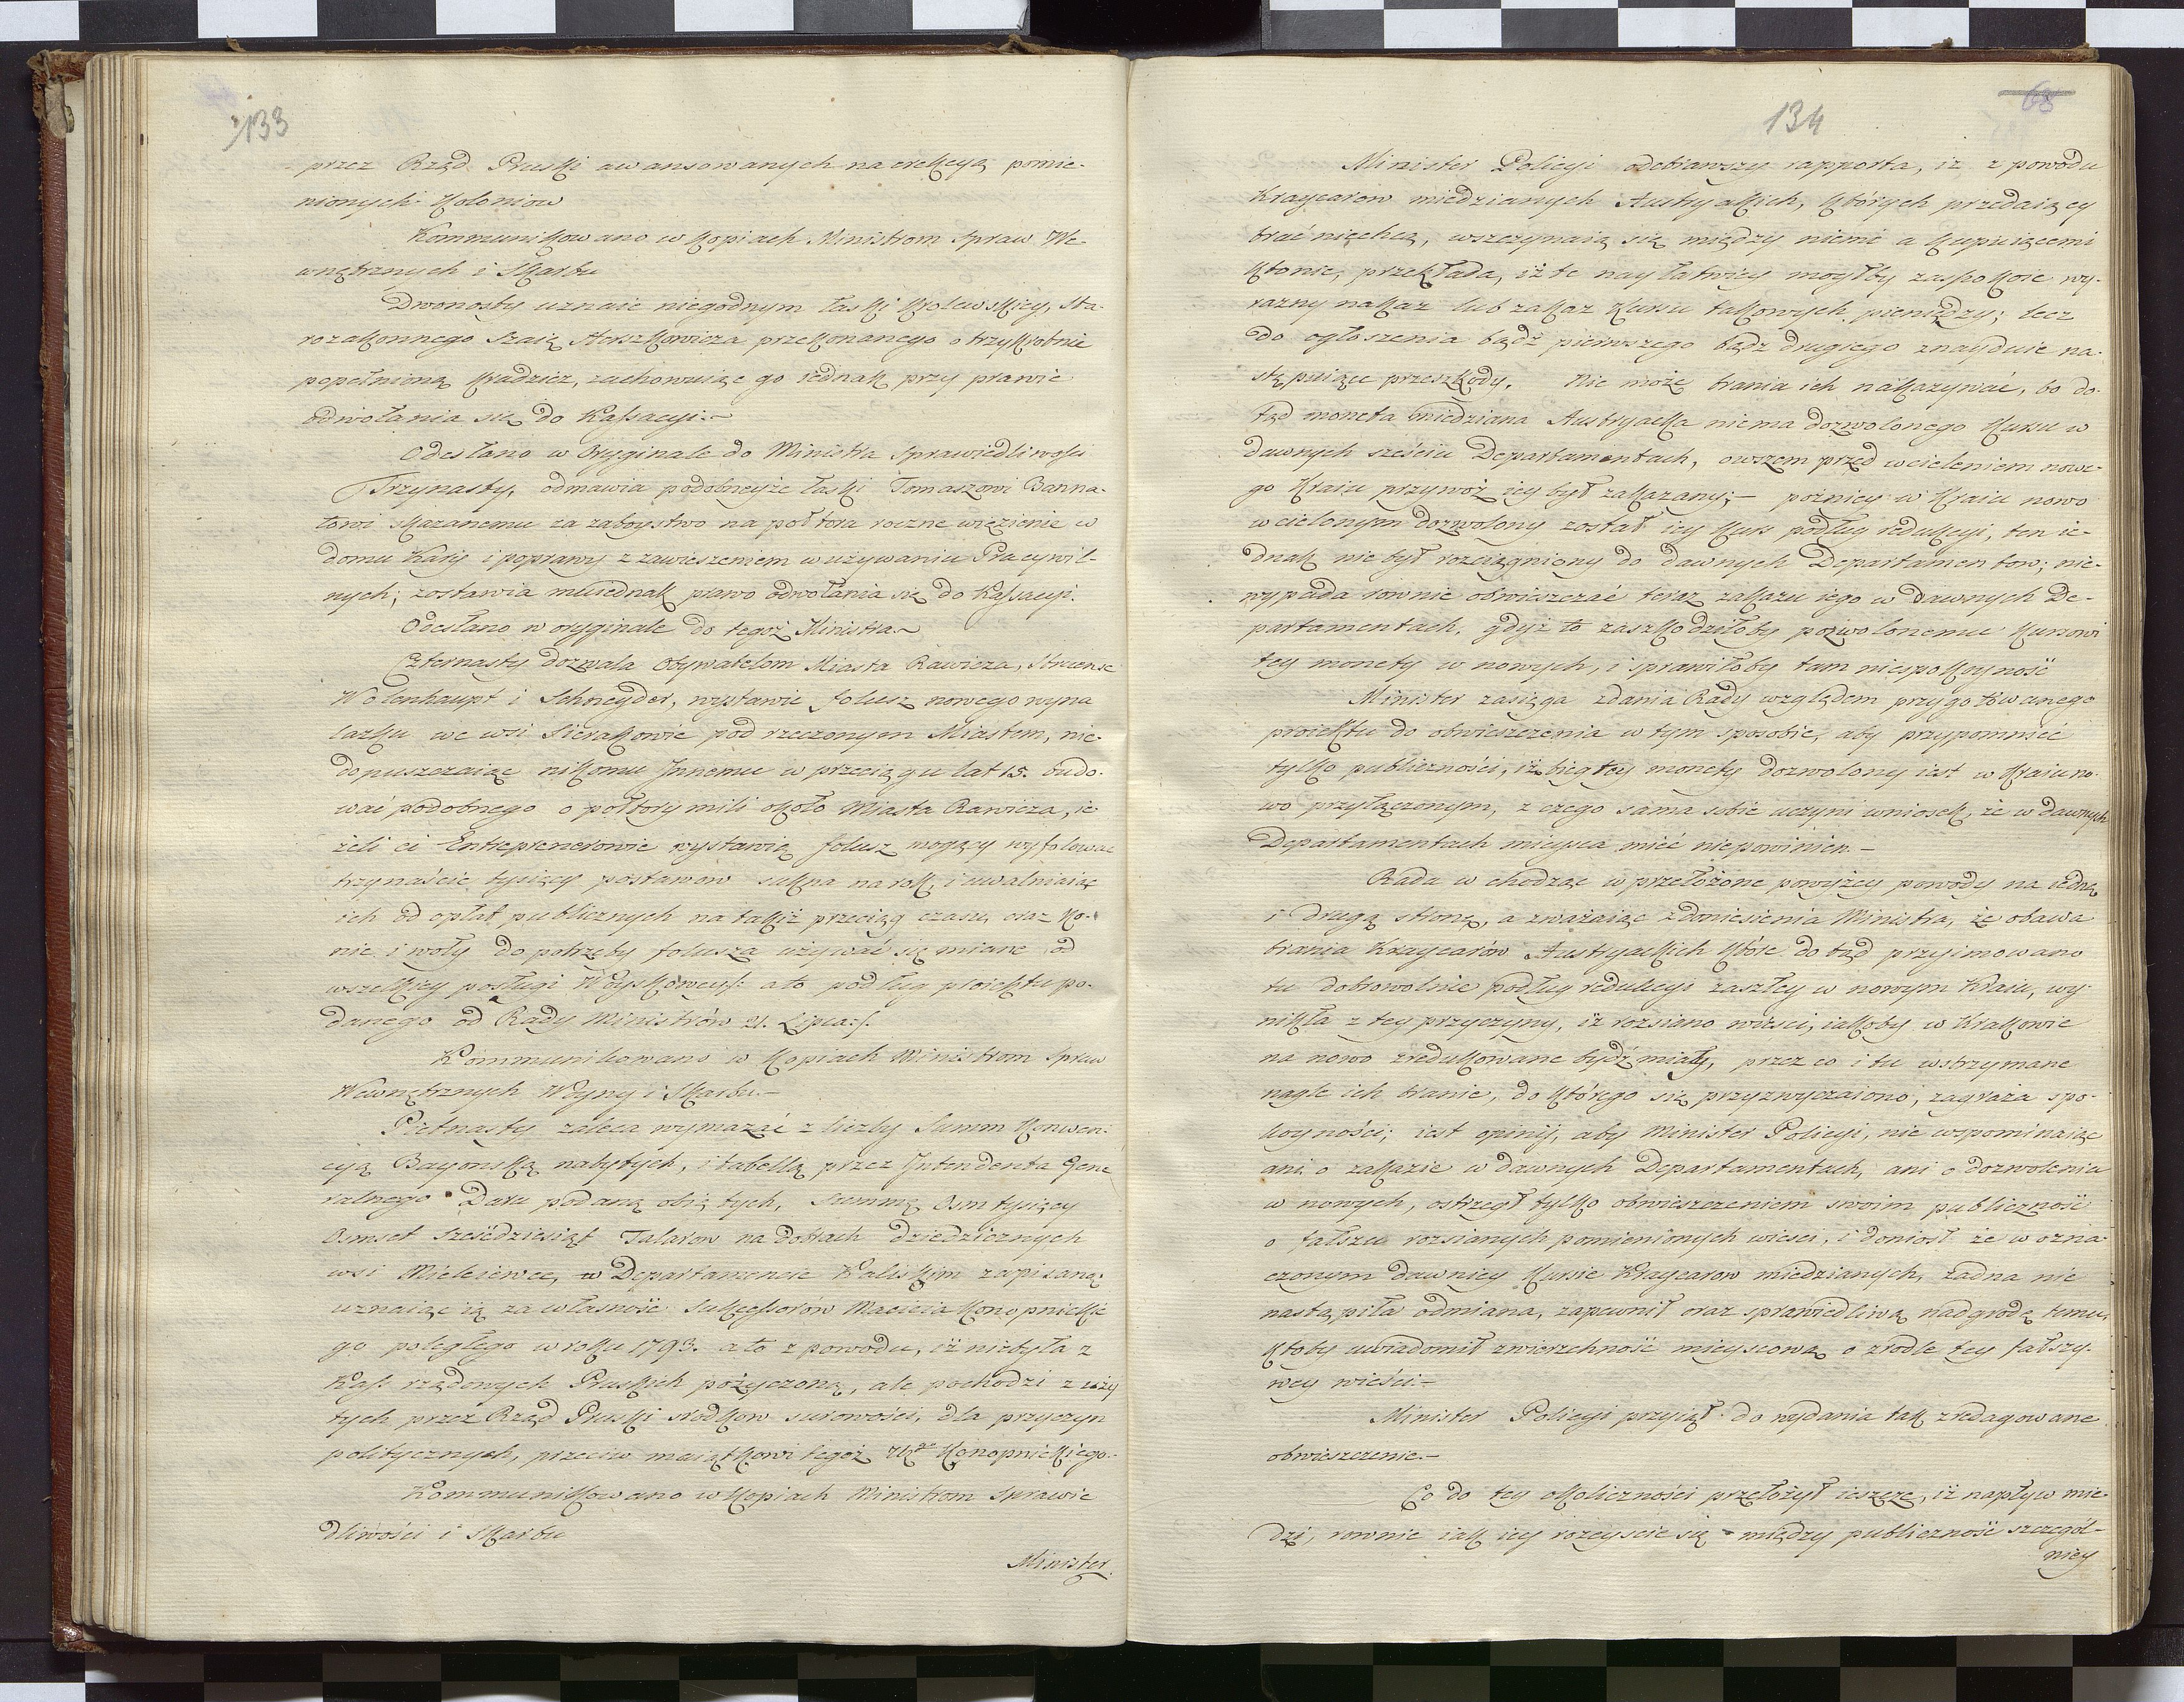 133
przez Rząd Pruski awansowanych na erekcyą pomie-
nionych Koloniow
Kommunikowano w kopiach Ministrom Spraw We-
wnętrznych i Skarbu
Dwonasty uznaie niegodnym łaski Krolewskiey, sta-
rozakonnego Szaię Herszkowicza przekonanego o trzykrotnie
popełnioną kradzież, zachowuiąc go iednak przy prawie
odwołania się do Kassacyi.~
Odesłano w Oryginale do Ministra Sprawiedliwości
Trzynasty, odmawia podobneyże łaski Tomaszowi Banna-
towi skazanemu za zaboystwo na poł tora roczne więzienie w
domu Kary i poprawy z zawieszeniem w używaniu Praw cywil-
nych; zostawia mu iednak prawo odwołania się do Kassacyi.
Odesłano w oryginale do tegoż Ministra.~
Czternasty dozwala Obywatelom Miasta Rawicza, Struense
Wolenhaupt i Schneyder, wystawić folusz nowego wyna
lazku we wsi Sierakowie pod rzeczonym Miastem, nie-
dopuszczaiąc nikomu Jnnemu w przeciągu lat 15. budo-
wać podobnego o półtory mili około Miasta Rawicza, ie-
żeli ci Entreprenerowie wystawią folusz mogący wyfolować
trzynaście tysięcy postawow sukna na rok, i uwalniaiąc
ich od opłat publicznych na takiż przeciąg czasu, oraz Ko-
nie i woły do potrzeby folusza używać się miane od
wszelkiey posługi Woyskowey/: a to podług proiektu po-
danego od Rady Ministrów 21. Lipca:/.
Kommunikowano w kopiach Ministrom Spraw
Wewnętrznych Woyny i Skarbu.-
Piętnasty zaleca wymazać z liczby Summ Konwen-
cyą Bayonską nabytych, i tabellą przez Jntendenta Gene
ralnego Daru podaną obiętych, Summę Osm tysięcy
Osmset sześćdziesiąt Talarow na dobrach dziedzicznych
wsi Mieleiewce, w Departamencie Kaliskim zapisaną;
uznaiąc ią za własność Sukcessorów Macieia Konopnickie
go poległego w roku 1793. a to z powodu, iż niebyła z
Kass rządowych Pruskich pożyczoną, ale pochodzi z uży
tych przez Rząd Pruski srodkow surowości, dla przyczyn
politycznych, przeciw maiątkowi tegoż Konopnickiego.-
Kommunikowano w kopiach Ministrom Sprawie
dliwości i Skarbu
Minister
134
68
Minister Policyi odebrawszy rapporta, iż z powodu
Kraycarow miedzianych Austryackich, których przedaiący
brać niechcą, wszczynaią się między niemi a kupuiącemi
kłotnie, przekłada, iż te nayłatwiey mogłby zaspokoić wy-
razny nakaz lub zakaz kursu takowych pieniędzy; lecz
do ogłoszenia bądź pierwszego bądź drugiego znayduie na-
stępuiące przeszkody. Nie może brania ich nakazywać, bo do-
tąd moneta miedziana Austryacka niema dozwolonego kursu w
dawnych sześciu Departamentach, owszem przed wcieleniem nowe-
go Kraiu przywóz iey był zakazany;- poźniey w Kraiu nowo
wcielonym dozwolony został iey kurs podług redukcyi, ten ie-
dnak nie był rozciągniony do dawnych Departamentow; nie-
wypada rownie obwieszczać teraz zakazu iego w dawnych De-
partamentach, gdyż to zaszkodziłoby pozwolonemu kursowi
tey monety w nowych, i sprawiłoby tam niespokoyność
Minister zasięga zdania Rady względem przygotowanego
proiektu do obwieszczenia w tym sposobie, aby przypomnieć
tylko publiczności, iż bieg tey monety dozwolony iest w Kraiu no-
wo przyłączonym, z czego sama sobie uczyni wniosek, że w dawnych
Departamentach mieysca mieć niepowinien.-
Rada wchodząc w przełożone powyżey powody na iedną
i drugą stronę, a zważaiąc z doniesienia Ministra, że obawa
brania Kraycarów Austryackich które dotąd przyimowano
tu dobrowolnie podług redukcyi zaszłey w nowym Kraiu, wy-
nikła z tey przyczyny, iż rozsiano wieści, iakoby w Krakowie
na nowo zredukowane bydź miały, przez co i tu wstrzymane
nagle ich branie, do którego się przyzwyczaiono, zagraża spo-
koyności; iest opinij, aby Minister Policyi, nie wspominaiąc
ani o zakazie w dawnych Departamentach, ani o dozwoleniu
w nowych, ostrzegł tylko obwieszczeniem swoim publiczność
o fałszu rozsianych pomienionych wieści, i doniosł że w ozna-
czonym dawniey kursie Kraycarow miedzianych, żadna nie
nastąpiła odmiana, zapewnił oraz sprawiedliwą nadgrodę temu,
ktoby uwiadomił zwierzchność mieyscową o zrodle tey fałszy-
wey wieści.-
Minister Policyi przyiął do wydania tak zredagowane
obwieszczenie.-
Co do tey okoliczności przełożył ieszcze, iż napływ mie-
dzi, rownie iak iey rozeyscie się między publiczność szczegól-
niey